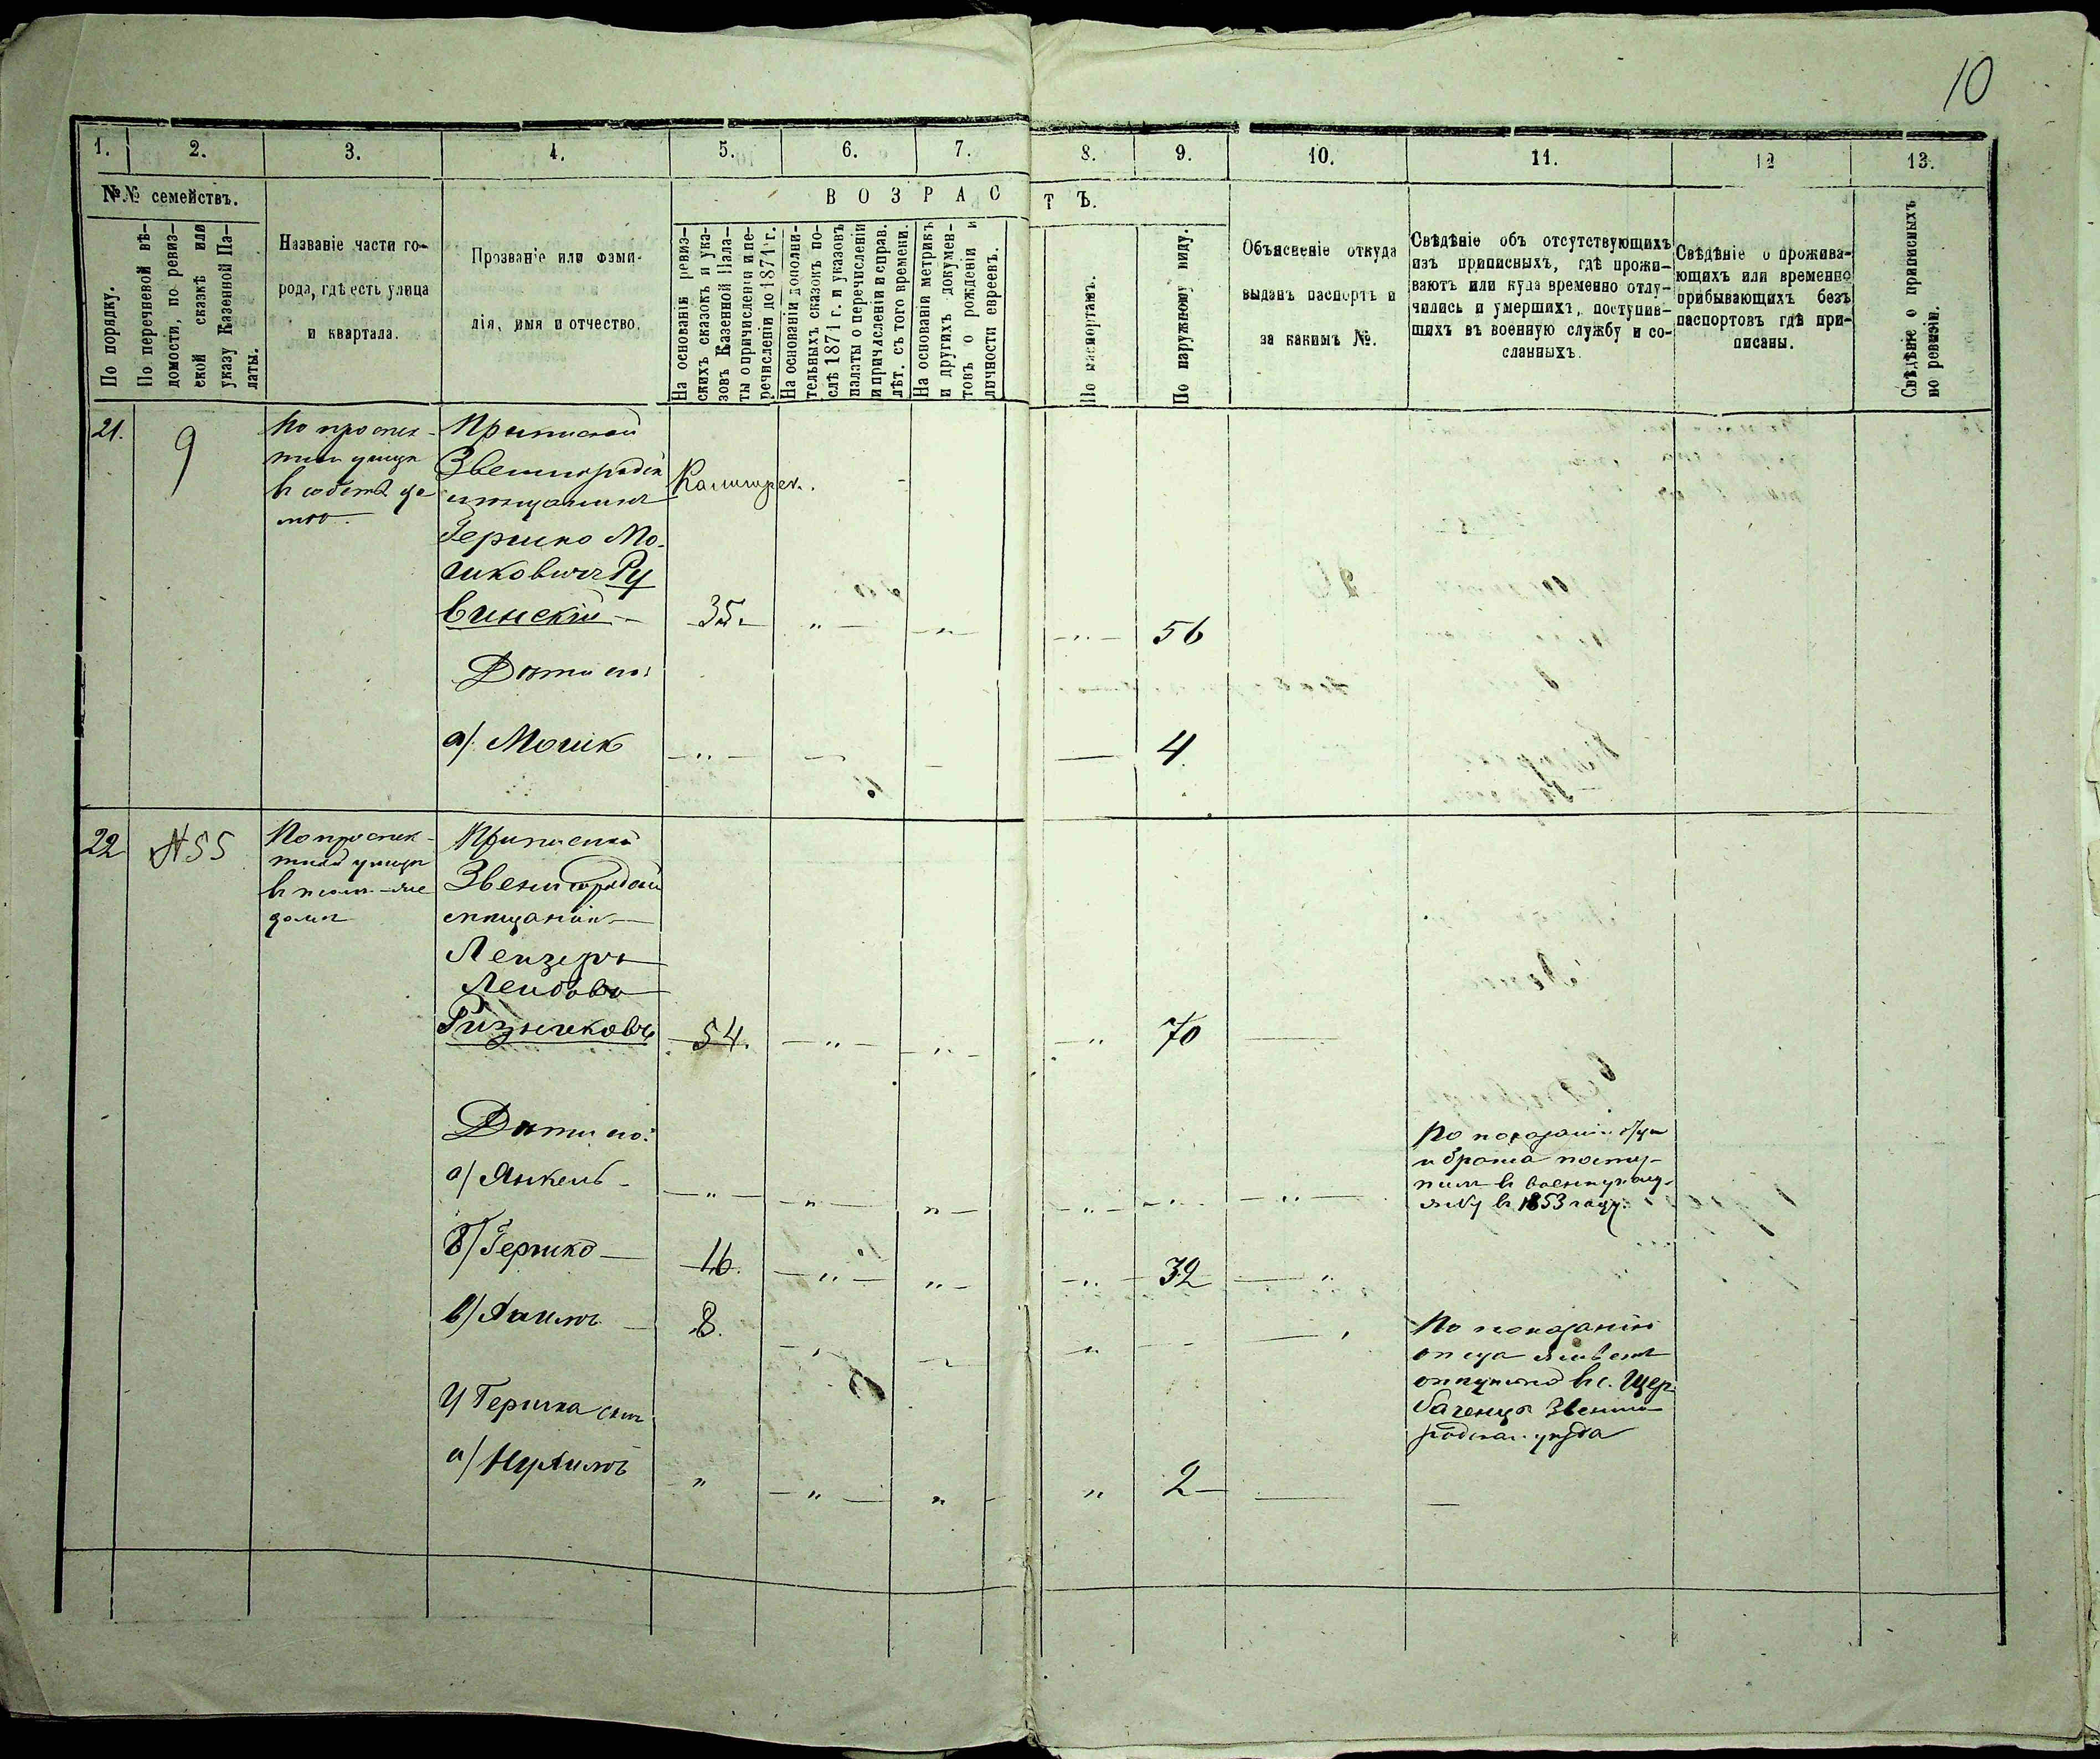 10
1.
2.
3.
4.
5.
6.
7.
8.
9.
10.
11.
12
13.
№№ семействъ.
По порядку.
По перечневой вѣ-
домости, по ревиз-
ской сказкѣ или
указу Казенной Па-
латы.
Названіе части го-
рода, гдѣ есть улица
и квартала.
Прозваніе или фами-
лія, имя и отчество.
ВОЗРАСТЪ.
На основаніи ревиз-
скихъ сказокъ и ука-
зовъ Казенной Пала-
ты о причисленіи и пе-
речисленіи до 1871 г.
На основаніи дополни-
тельныхъ сказокъ по-
слѣ 1871 г. и указовъ
палаты о перечисленіи
и причисленіи и справ.
лѣт. съ того времени.
На основаніи метрикъ
и другихъ докумен-
товъ о рожденіи и
личности евреевъ.
По паспортамъ.
По наружному виду.
Объясненіе откуда
выданъ паспортъ и
за какимъ №.
Свѣдѣніе объ отсутствующихъ
изъ приписныхъ, гдѣ прожи-
ваютъ или куда временно отлу-
чились и умершихъ, поступив-
шихъ въ военную службу и со-
сланныхъ.
Свѣдѣніе о прожива-
ющихъ или временно
прибывающихъ безъ
паспортовъ гдѣ при-
писаны.
Свѣдѣніе о приписныхъ
по ревизіи.
21.
9
По проспек-
тной улицѣ
въ собств. до
мѣ.
Приписной
Звенигородск
мѣщанинъ
Гершко Мо-
шковичъ Ру
винскій
35.
56
Дѣти его:
а/. Мошко
4
22
№ 55
По проспек-
тной улицѣ
въ
домѣ
Приписной
Звенигородскій
мѣщанинъ
Лейзеръ
Лейбовъ
Ризниковъ
54.
70
Дѣти его:
а/ Янкель
По показанію отца
и брата посту-
пилъ въ военную слу-
жбу въ 1853 году.
б/ Гершко
16.
32
в/
8.
По показанію
отца живетъ
въ с. Щер
баченцы Звениго
родскаго уѣзда
У Гершка сынъ
а/ Нухимъ
2